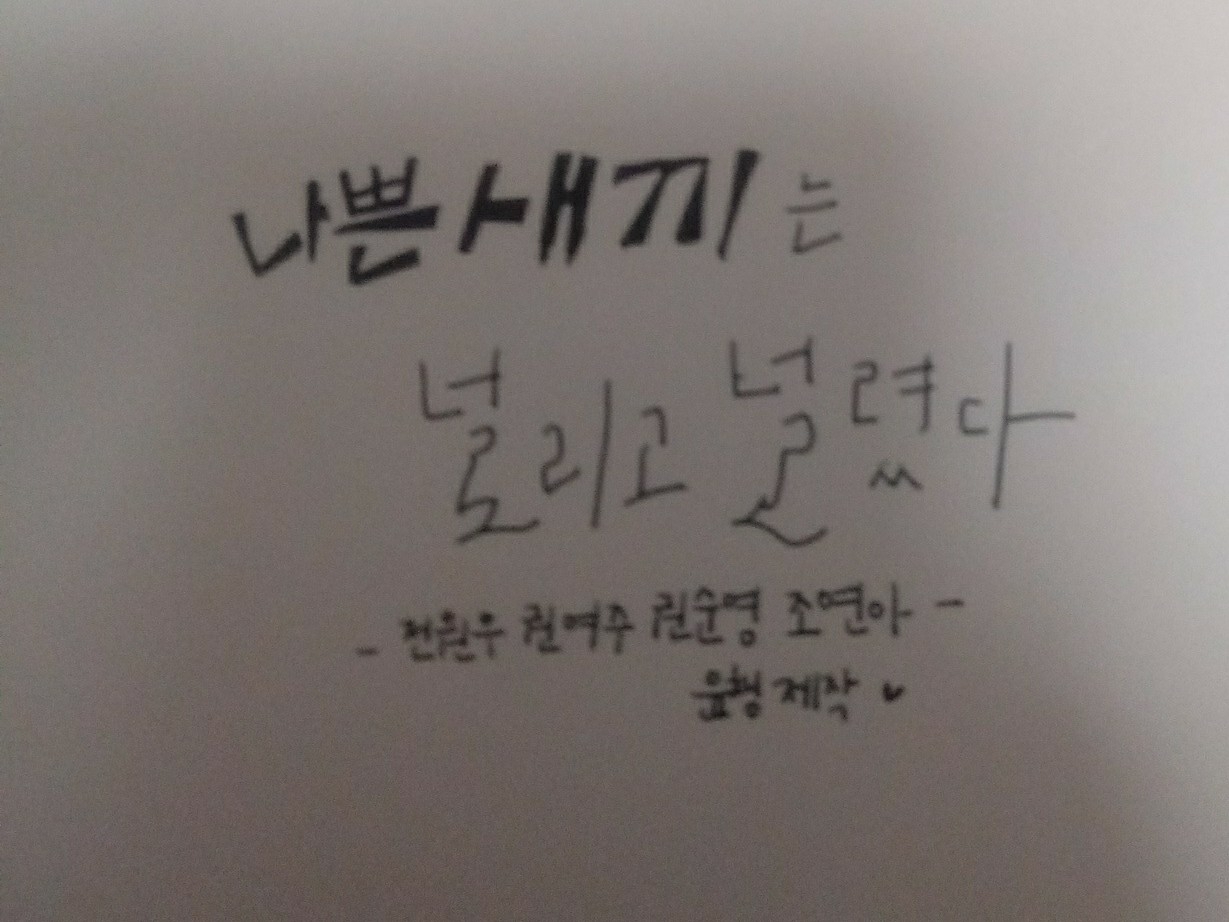 나쁜새끼는
널리고 널렸다
- 전원우 권여주 권순영 조연아 -
제작 ♥